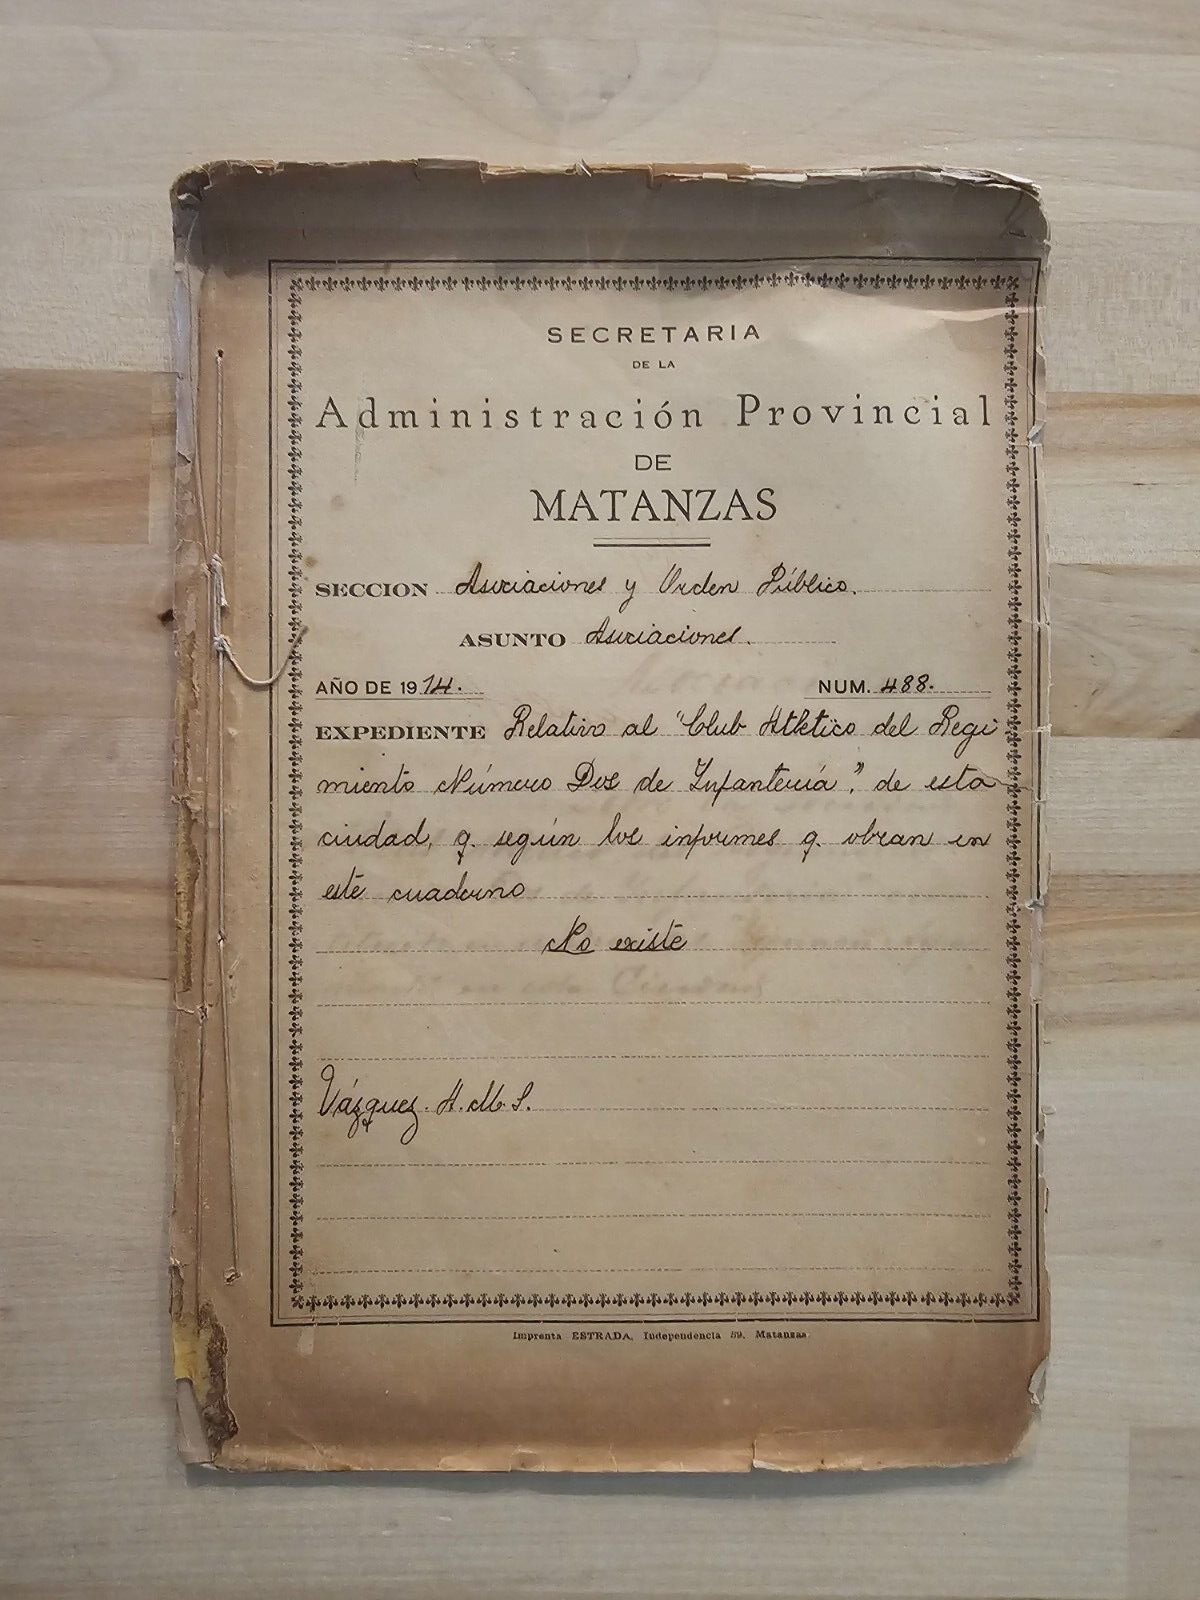 SECRETARIA
DE LA
Administración Provincial
DE
MATANZAS
SECCION Asociaciones y Orden Público.
ASUNTO Asociaciones.
AÑO DE 1914. NUM. 488.
EXPEDIENTE Relativo al "Club Atlético del Regi
miento Número Dos de Infantería", de esta
ciudad, q. según los informes q. obran en
este cuaderno
No existe
Vázquez. A. M. S.
Imprenta ESTRADA, Independencia 59, Matanzas